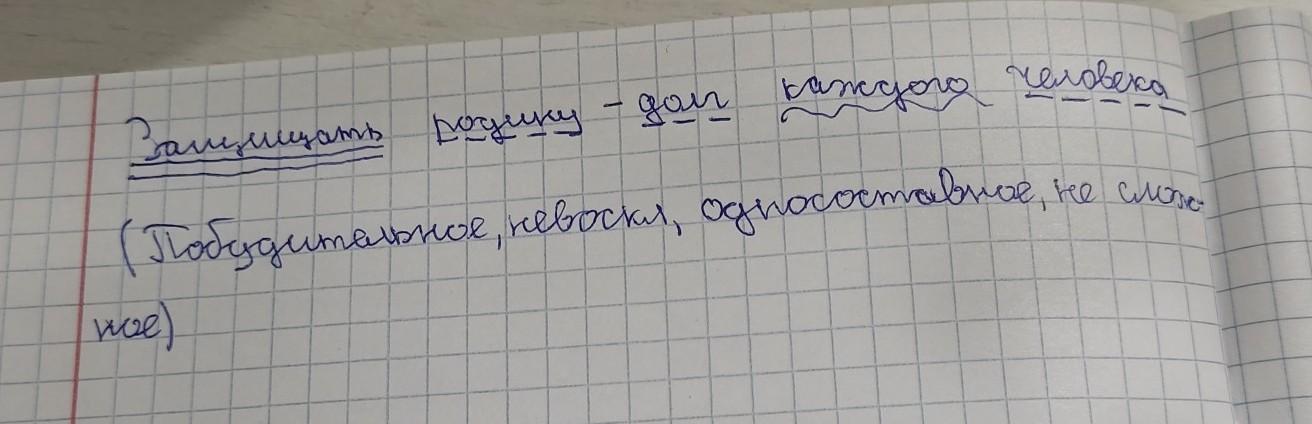 Защищать родину - долг каждого человека
(Побудительное, невоскл, односоставное, не слож-
ное)